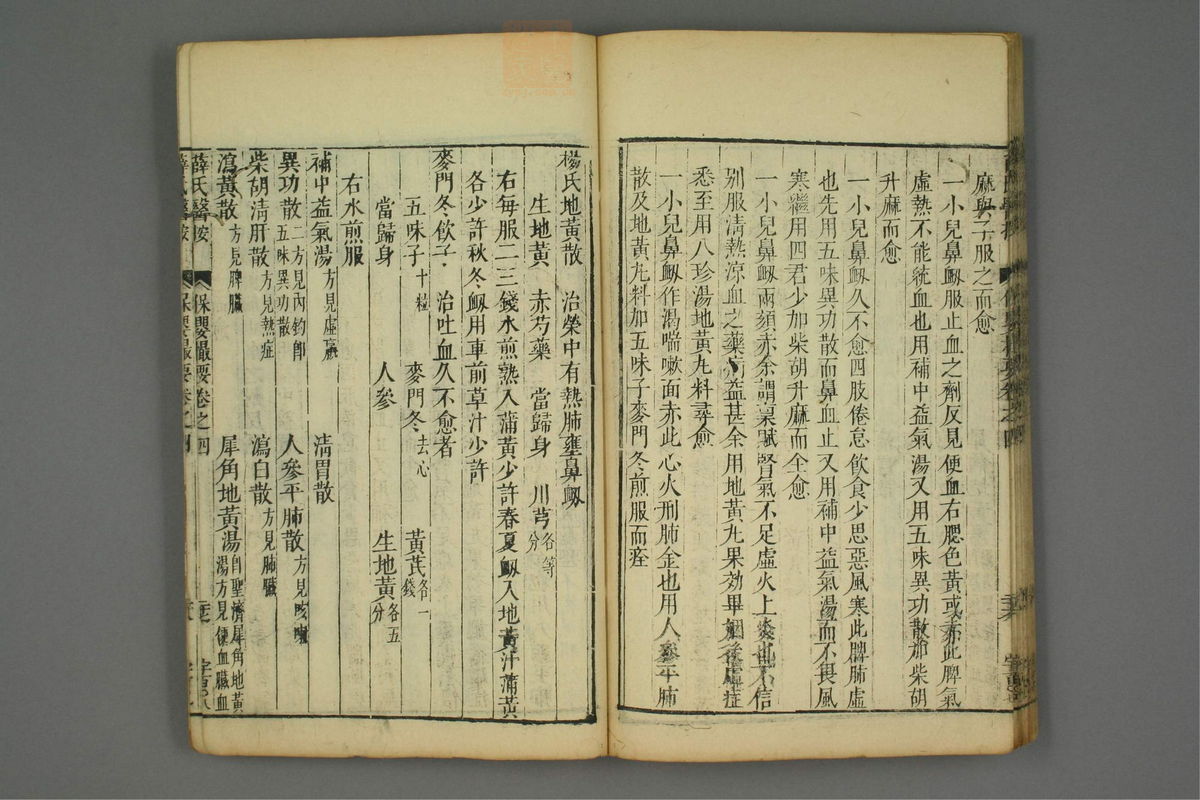 麻與子服之而愈
一小兒鼻衂服止血之劑反見便血右腮色黃或赤此脾氣
虛熱不能統血也用補中益氣湯又用五味異功散加柴胡
升麻而愈
一小兒鼻衂久不愈四肢倦怠飲食少思惡風寒此脾肺虛
也先用五味異功散而鼻血止又用補中益氣湯而不畏風
寒繼用四君少加柴胡升麻而全愈
一小兒鼻衂兩頦赤余謂稟賦腎氣不足虛火上炎也不信
別服淸熱涼血之藥病益甚余用地黃丸果効畢姻後虛症
悉至用八珍湯地黃丸料尋愈
一小兒鼻衂作渴喘嗽面赤此心火刑肺金也用人參平肺
散及地黃丸料加五味子麥門冬煎服而痊
楊氏地黃散 治榮中有熱肺壅鼻衂
生地黃 赤芍藥 當歸身 川芎各等分
右每服二三錢水煎熟入蒲黃少許春夏衂入地黃汁蒲黃
各少許秋冬衂用車前草汁少許
麥門冬飲子 治吐血久不愈者
五味子十粒 麥門冬去心 黃芪各一錢
當歸身 人參 生地黃各五分
右水煎服
補中益氣湯方見虛羸 淸胃散
異功散二方見內釣卽五味異功散 人參平肺散方見咳嗽
柴胡淸肝散方見熱症 瀉白散方見肺臟
瀉黃散方見脾臟 犀角地黃湯卽聖濟犀角地黃湯方見便血臟血
薛氏醫按 保嬰撮要卷之四